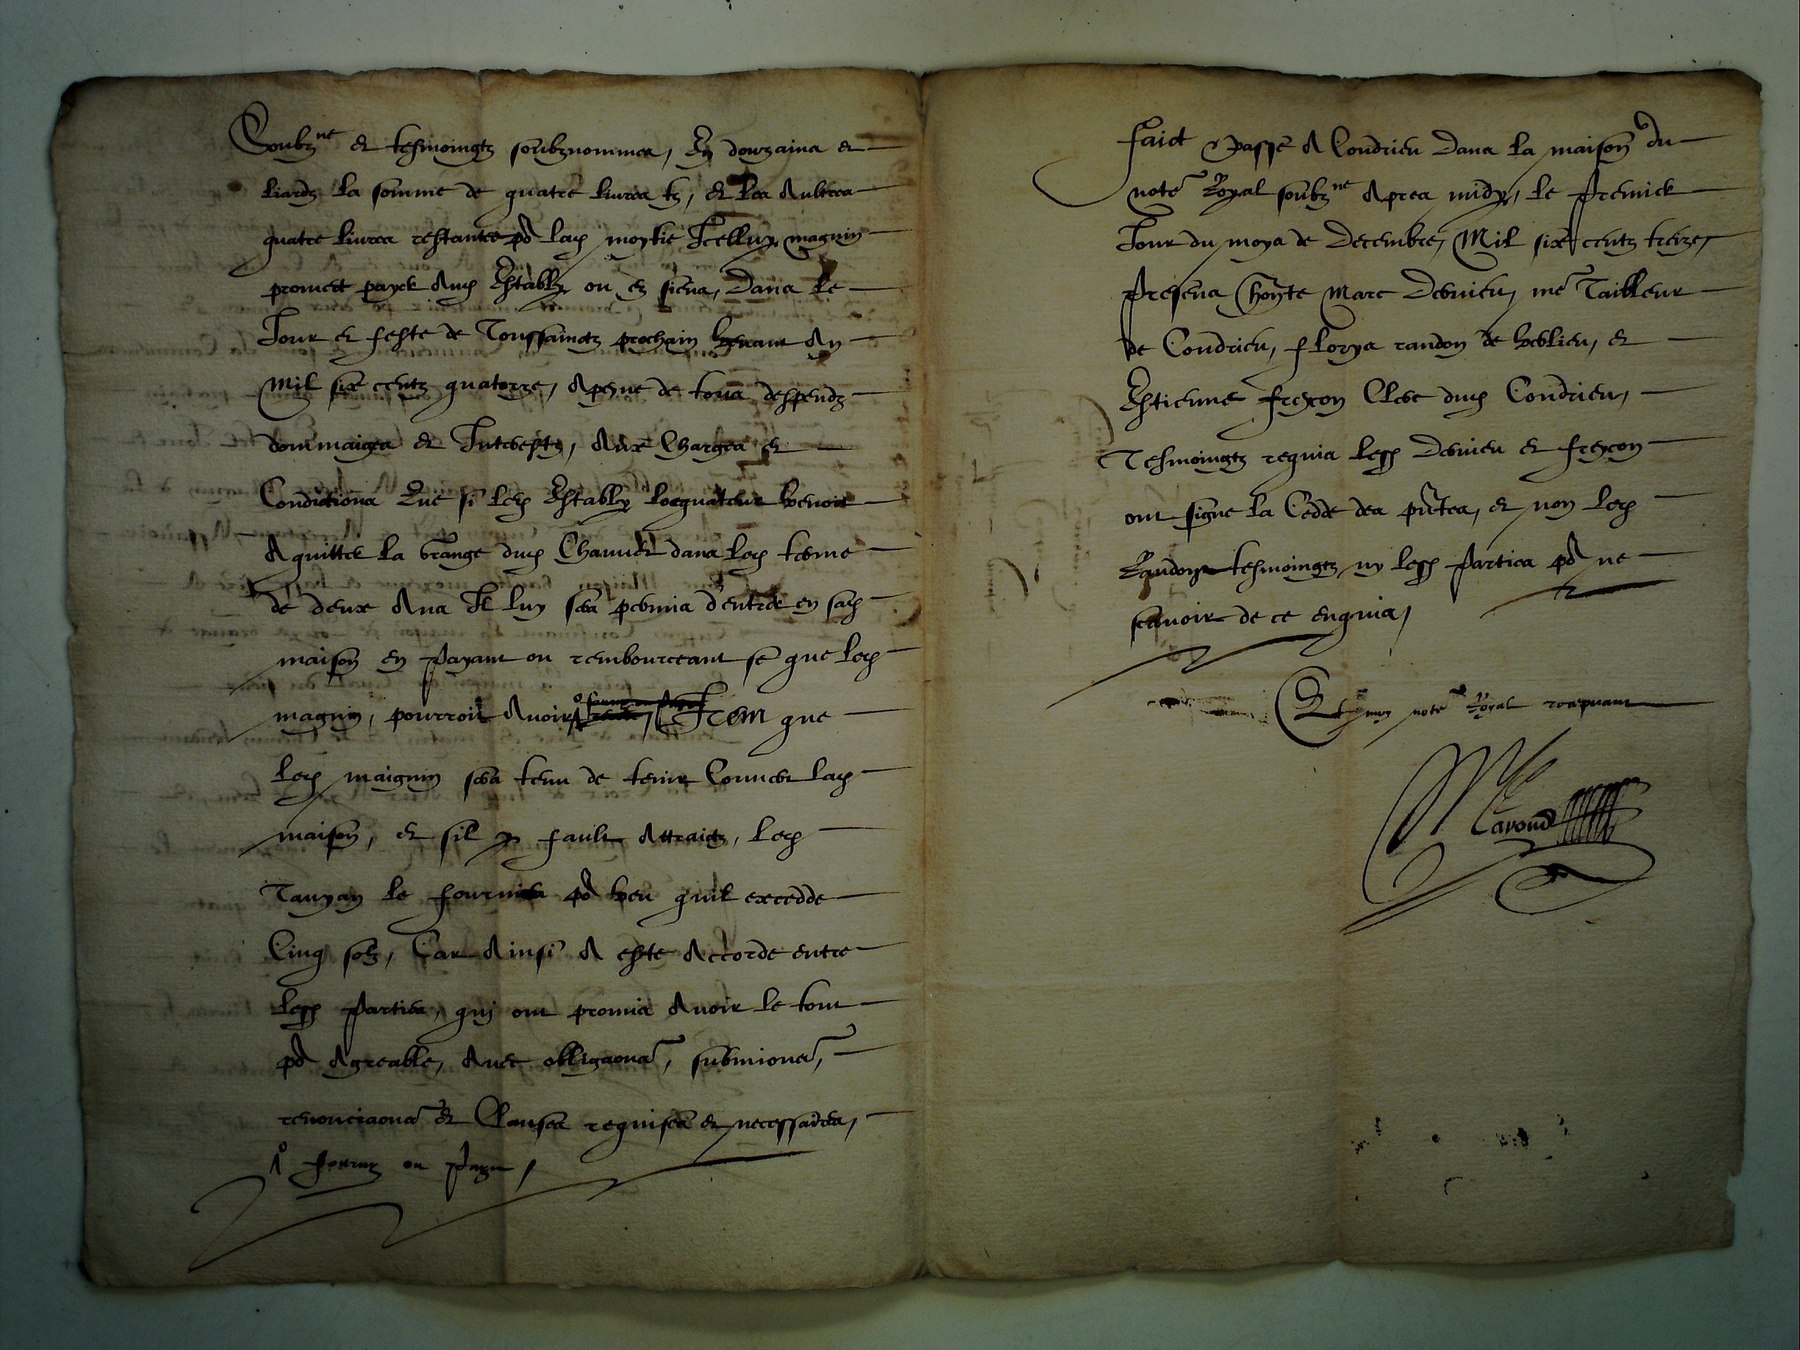 Soubzne et tesmoingtz soubznommes, En douzains et
liardz la somme de quatre livres tz, et les Aultres
quatre livres restantes pd lad moytie Icelluy magnin
promect payer Aud Establz ou es siens, Dans le
Jour et feste de Toussainctz prochain venant An
Mil six centz quatorze, A peyne de tous despendz
dommaiges et Interestz, Aux Charges et
Conditions Que si led Establz locquateur venoit
A quitter la Grange dud Chauner dans led terme
de deux Ans Il luy sera permis d'entrer en sad
maison en payant ou rembourceant se que led
magnin, pourroit Avoir, Item que
led maignin sera tenu de tenir Couver lad
maison, et sil y fault Attraictz, led
Tauyan le fournira pd veu quil excedde
Cinq solz, Car Ainsi A este Accorde entre
lesd parties, qui ont promis Avoir le tout
pd Agreable, Avec obligaons, submions,
renonciaons et Clauses requises et necessaires,
ou
Faict et passe A Condrieu Dans la maison du
note Royal soubzne Apres midy, le premier
Jour du moys de Decembre, Mil six centz treize,
Presens honte Marc Dervieu, me Tailleur
de Condrieu, Florys randon de verlieu, et
Estienne freycon Clerc dud Condrieu,
Tesmoingtz requis lesd Dervieu et freycon
ont signe la Cedde des pntes, et non led
Randon tesmoingtz ny lesd parties pd ne
scavoir de ce enquis,
Et moy note Royal recepvant
Carond